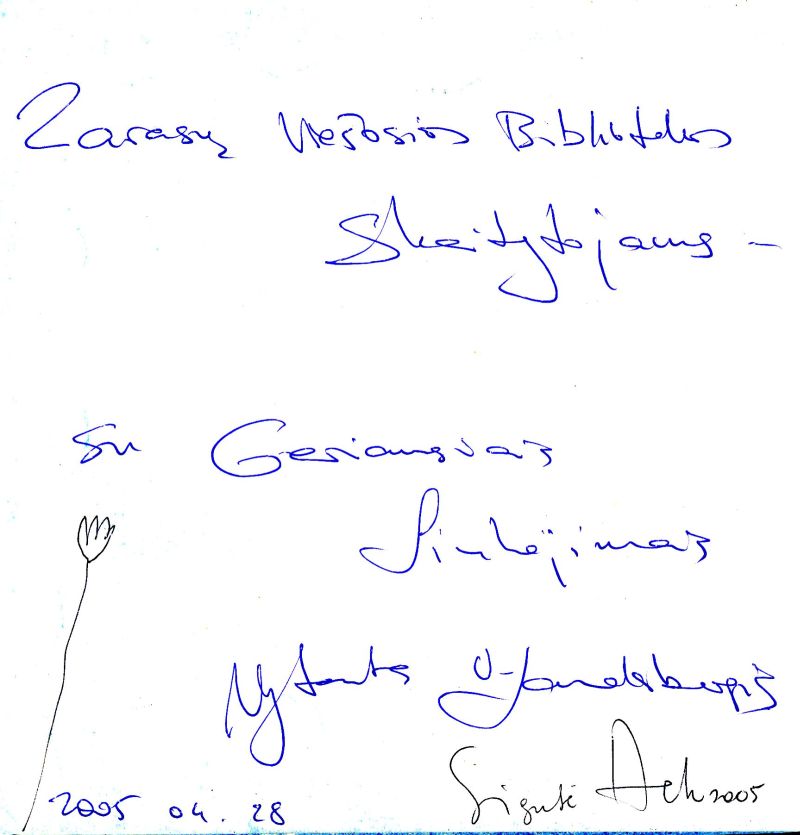 Zarasų Viešosios Bibliotekos
Skaitytojams –
Su Geriausiais
Linkėjimais
Vytautas V. Landsbergis
2005 04. 28
Sigutė Ach 2005